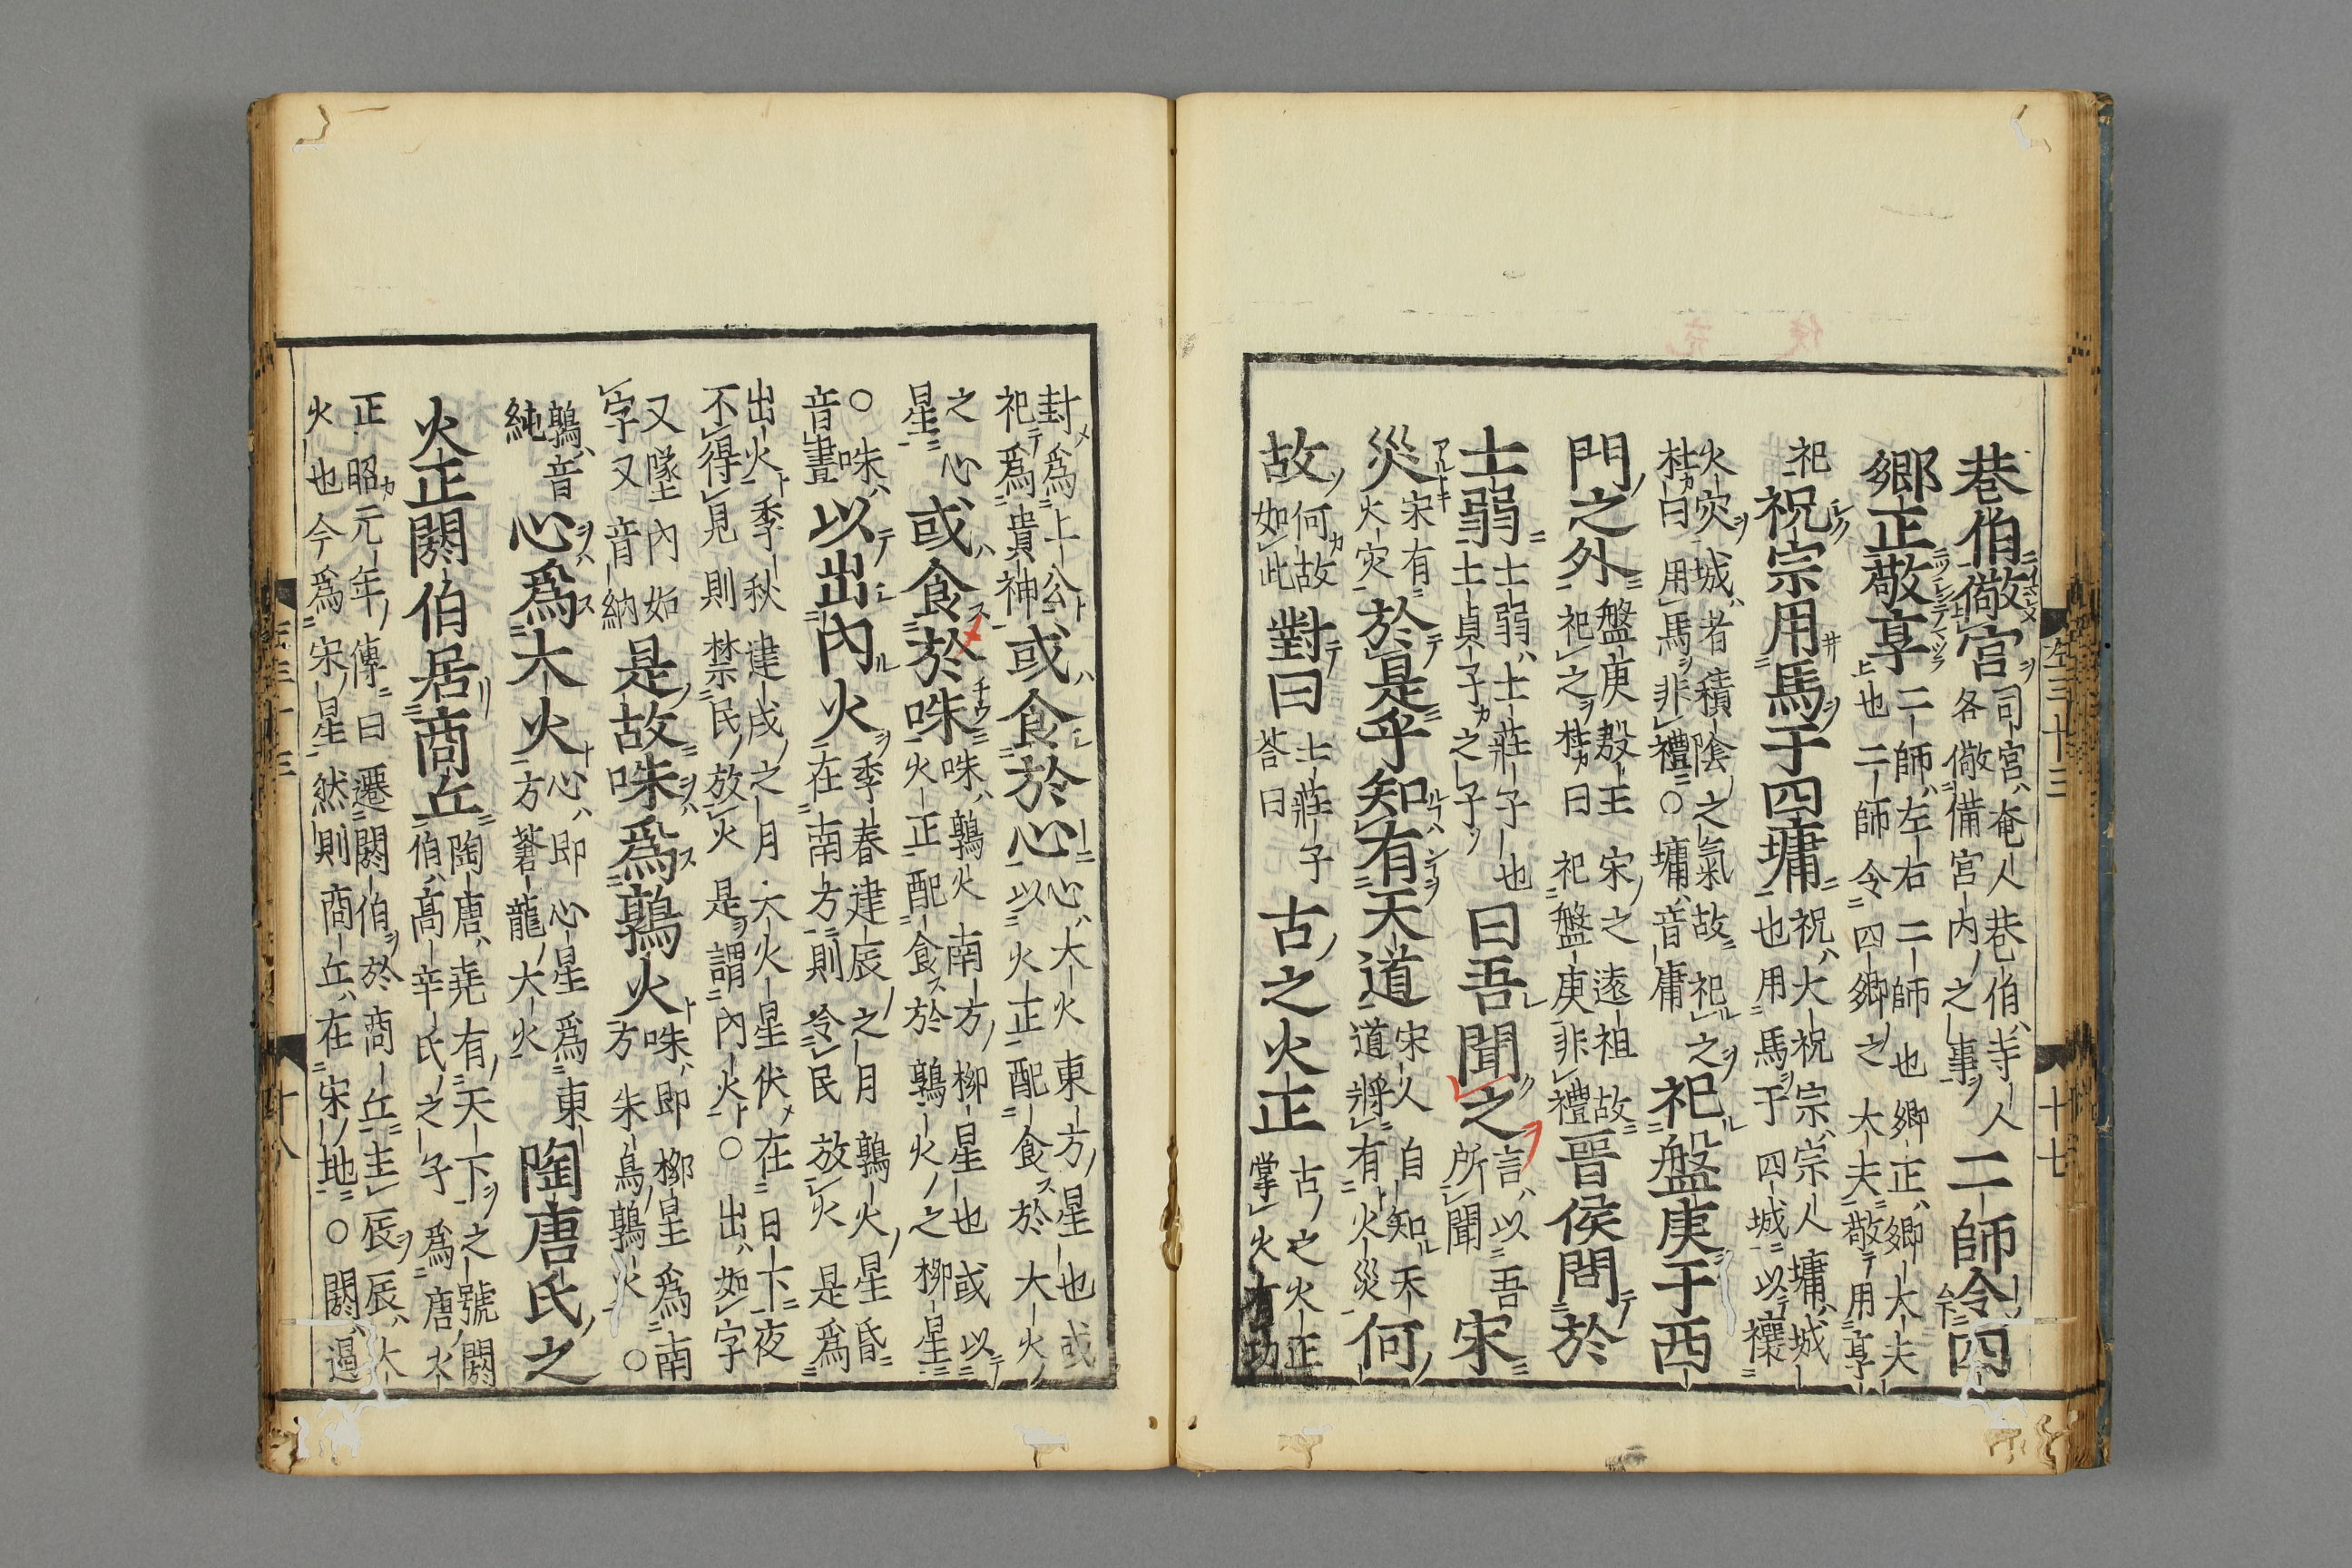 左三十三 十七
巷伯儆宮司宮奄人巷伯寺人各儆備宮内之事二師令四
鄉正敬享二師左右二師也鄉正鄉大夫也二師令四鄉之大夫敬用享
祀祝宗用馬于四墉祝大祝宗宗人墉城也用馬于四城以禳
火灾城者積陰之氣故祀之杜曰用馬非禮○墉音庸祀盤庚于西
門之外盤庚殷王宋之遠祖故祀之杜曰祀盤庚非禮晉侯問於
士弱士弱士莊子也士貞子之子曰吾聞之言以吾所聞宋
災宋有火灾於是乎知有天道宋人自知天道將有火災何
故何故如此對曰士莊子荅曰古之火正古之火正掌火有功
封爲上公祀爲貴神或食於心心大火東方星也或以火正配食於大火
之心星或食於咮咮鶉火南方柳星也或以火正配食於鶉火之柳星
○咮音晝以出內火季春建辰之月鶉火星昏在南方則令民放火是爲
出火季秋建戌之月大火星伏在日下夜不得見則禁民放火是謂內火○出如字
又墜內如字又音納是故咮爲鶉火咮即柳星爲南方朱鳥鶉火○
鶉音純心爲大火心即心星爲東方蒼龍大火陶唐氏之
火正閼伯居商丘陶唐堯有天下之號閼伯高辛氏之子爲唐火
正昭元年傳曰遷閼伯於商丘主辰辰大火也今爲宋星然則商丘在宋地○閼遏
十八